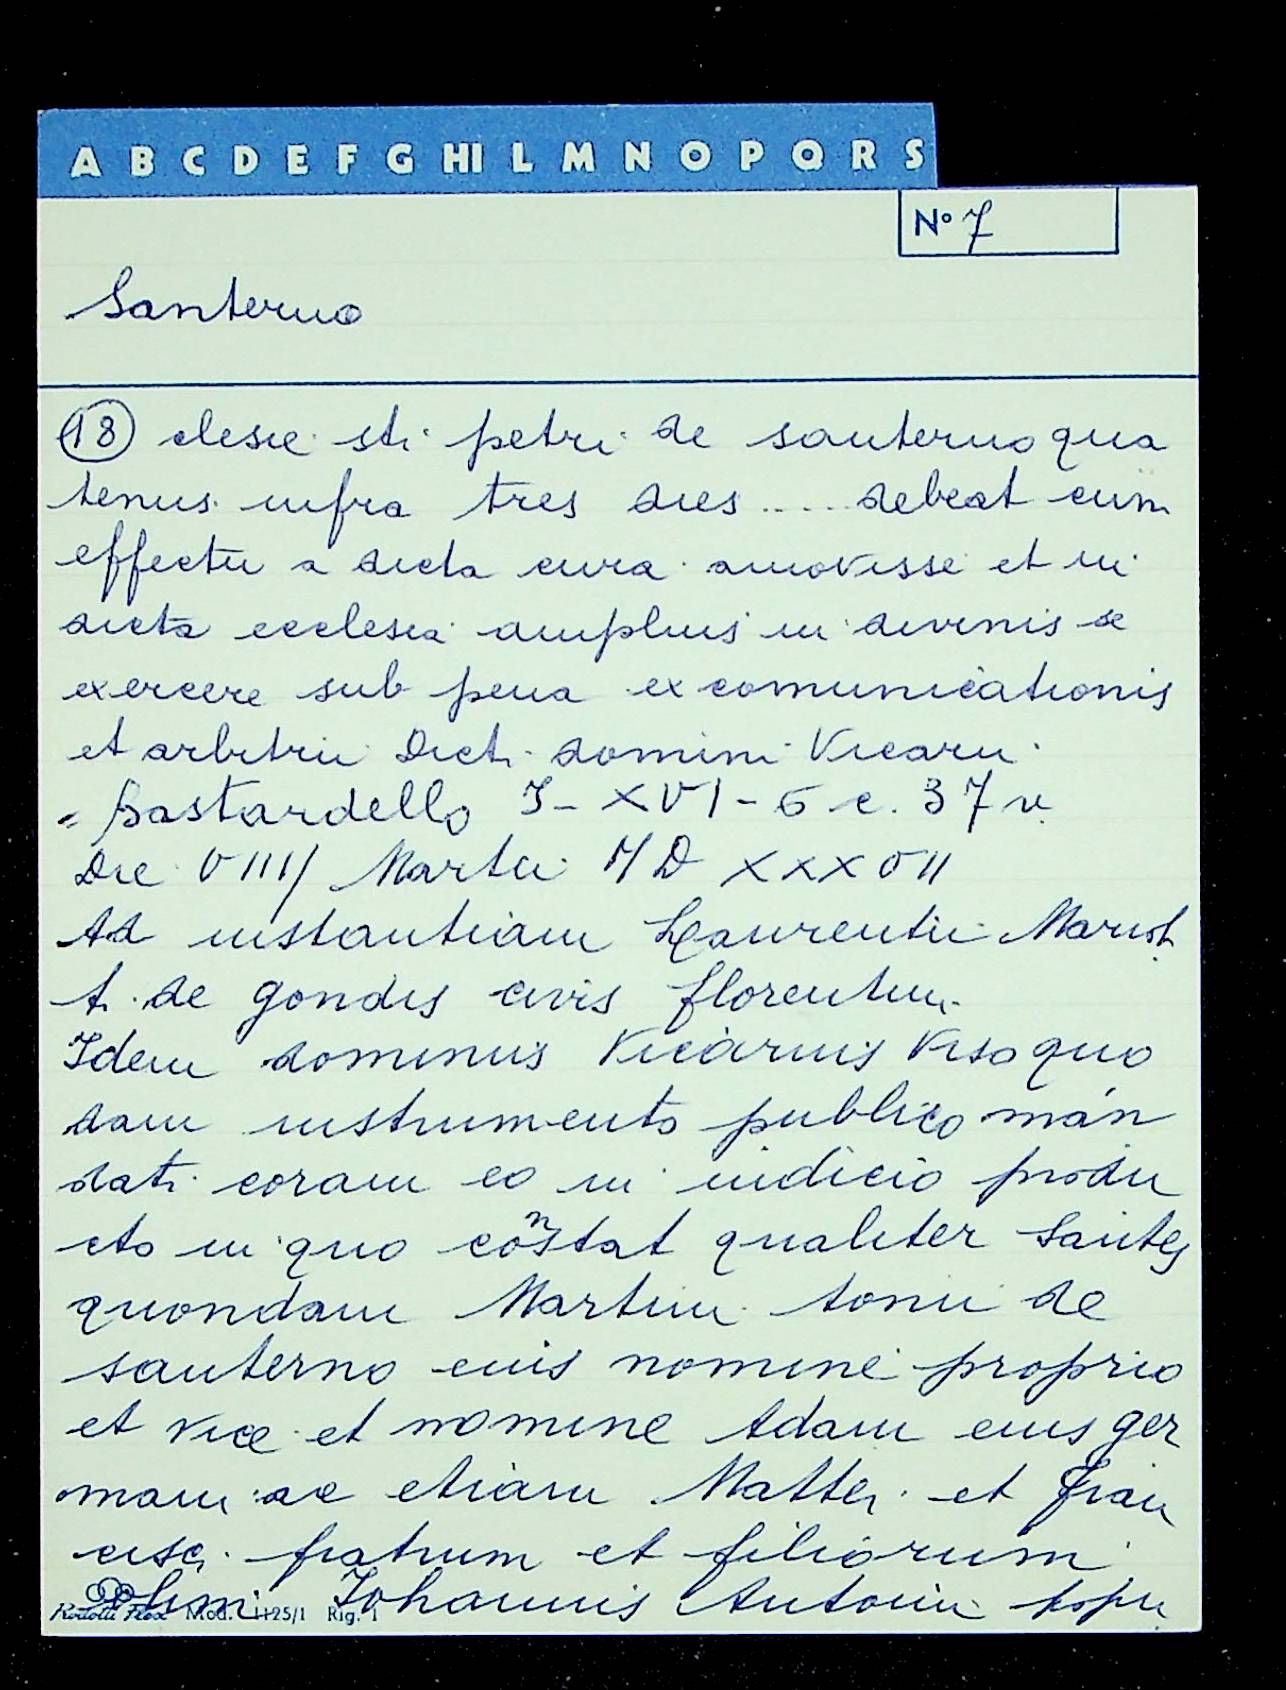 A B C D E F G HI L M N O P Q R S
N° 7
Santerno
18 clesie sti petri de santerno qua
tenus infra tres dies ..... debeat cum
effectu a dicta cura amovisse et in
dicta ecclesia amplius in divinis se
exercere sub pena excomunicationis
et arbitrii dicti domini Vicarii
= Bastardello I - XVI - 6 c. 37 v.
Die VIII Martii MDXXXVII
Ad instantiam Laurentii Mariot
ti de gondis civis florentini
Idem dominus Vicarius Viso quo
dam instrumento publico man
dati coram eo in iudicio produ
cto in quo constat qualiter Santes
quondam Martini tonii de
santerno eius nomine proprio
et vice et nomine Adam eius ger
mani ac etiam Mattei et fran
cisci fratrum et filiorum
olim Johannis Antonii popu
Rodolli Flex Mod. 1125/1 Rig. 1